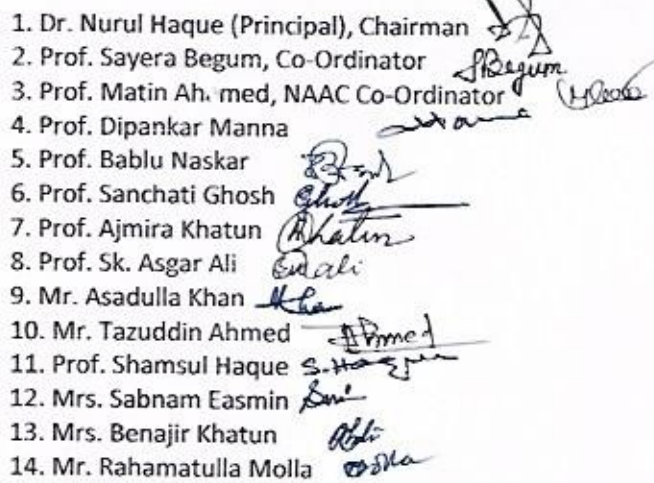 1. Dr. Nurul Haque (Principal), Chairman
2. Prof. Sayera Begum, Co-Ordinator SBegum
3. Prof. Matin Ah. med, NAAC Co-Ordinator
4. Prof. Dipankar Manna
5. Prof. Bablu Naskar
6. Prof. Sanchati Ghosh Ghosh
7. Prof. Ajmira Khatun Khatun
8. Prof. Sk. Asgar Ali ali
9. Mr. Asadulla Khan
10. Mr. Tazuddin Ahmed Ahmed
11. Prof. Shamsul Haque S. Haque
12. Mrs. Sabnam Easmin
13. Mrs. Benajir Khatun
14. Mr. Rahamatulla Molla